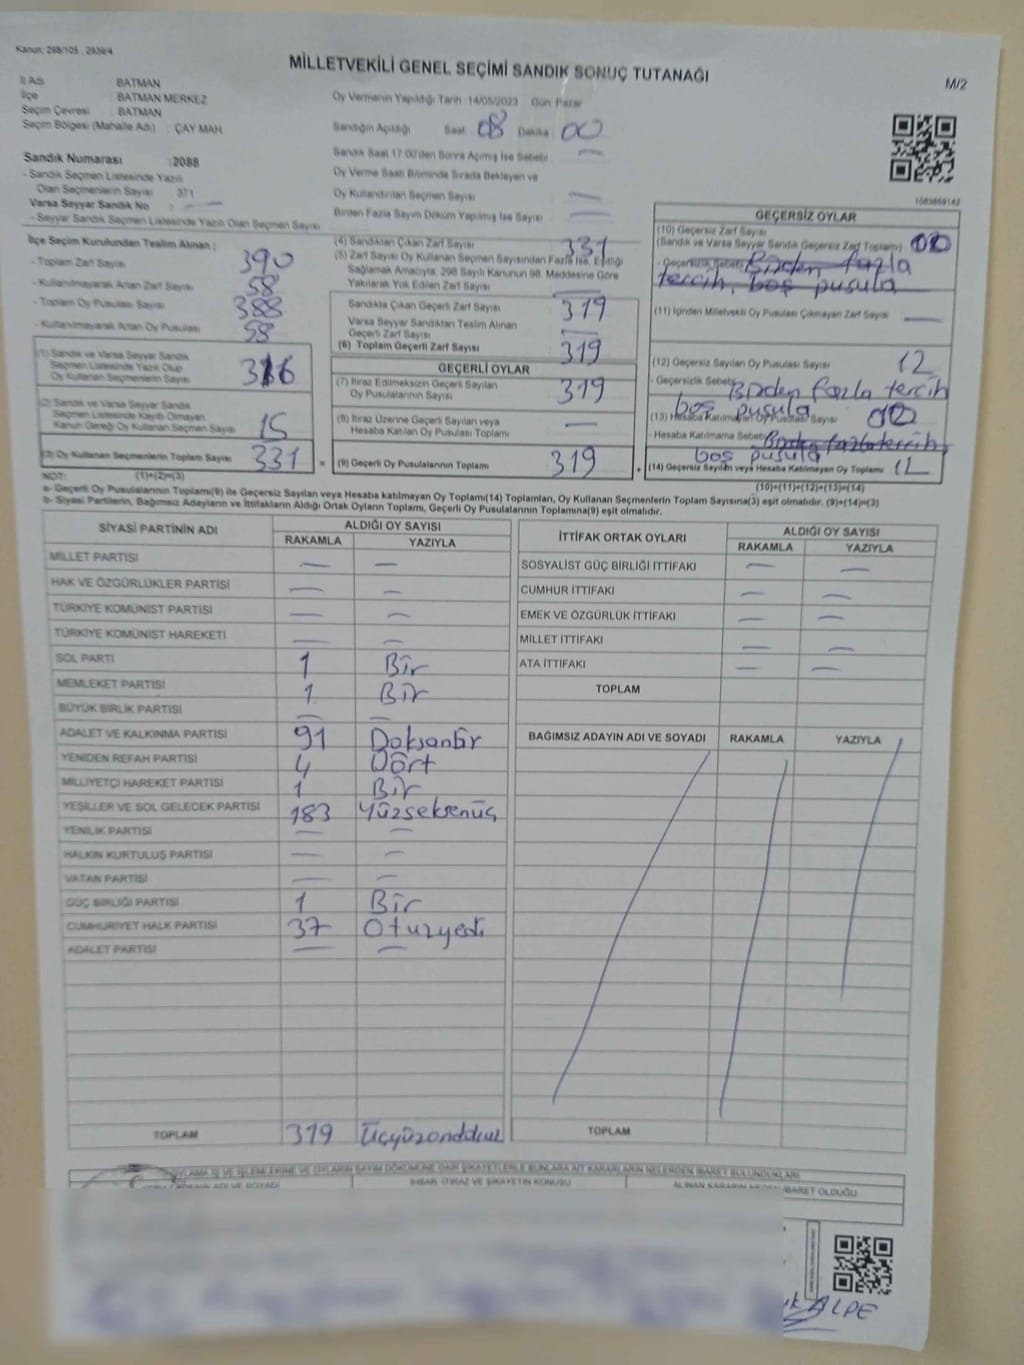 Kanun: 298/105 , 2839/4
MİLLETVEKİLİ GENEL SEÇİMİ SANDIK SONUÇ TUTANAĞI
M/2
İl Adı : BATMAN
İlçe : BATMAN MERKEZ
Seçim Çevresi : BATMAN
Seçim Bölgesi (Mahalle Adı) : ÇAY MAH
Sandık Numarası :2088
- Sandık Seçmen Listesinde Yazılı
Olan Seçmenlerin Sayısı : 371
Varsa Seyyar Sandık No : —
- Seyyar Sandık Seçmen Listesinde Yazılı Olan Seçmen Sayısı
Oy Vermenin Yapıldığı Tarih :14/05/2023 Gün: Pazar
Sandığın Açıldığı Saat 08 Dakika 00
Sandık Saat 17:00'den Sonra Açılmış İse Sebebi : —
Oy Verme Saati Bitiminde Sırada Bekleyen ve
Oy Kullandırılan Seçmen Sayısı —
Birden Fazla Sayım Döküm Yapılmış İse Sayısı —
1083609142
İlçe Seçim Kurulundan Teslim Alınan :
- Toplam Zarf Sayısı 390
- Kullanılmayarak Artan Zarf Sayısı 58
- Toplam Oy Pusulası Sayısı 388
- Kullanılmayarak Artan Oy Pusulası 58
(1) Sandık ve Varsa Seyyar Sandık
Seçmen Listesinde Yazılı Olup
Oy Kullanan Seçmenlerin Sayısı 316
(2) Sandık ve Varsa Seyyar Sandık
Seçmen Listesinde Kayıtlı Olmayan
Kanun Gereği Oy Kullanan Seçmen Sayısı 15
(3) Oy Kullanan Seçmenlerin Toplam Sayısı 331
(4) Sandıktan Çıkan Zarf Sayısı 331
(5) Zarf Sayısı Oy Kullanan Seçmen Sayısından Fazla İse, Eşitliği
Sağlamak Amacıyla, 298 Sayılı Kanunun 98. Maddesine Göre
Yakılarak Yok Edilen Zarf Sayısı —
Sandıkta Çıkan Geçerli Zarf Sayısı 319
Varsa Seyyar Sandıktan Teslim Alınan
Geçerli Zarf Sayısı —
(6) Toplam Geçerli Zarf Sayısı 319
GEÇERLİ OYLAR
(7) İtiraz Edilmeksizin Geçerli Sayılan
Oy Pusulalarının Sayısı 319
(8) İtiraz Üzerine Geçerli Sayılan veya
Hesaba Katılan Oy Pusulası Toplamı —
= (9) Geçerli Oy Pusulalarının Toplamı 319
GEÇERSİZ OYLAR
(10) Geçersiz Zarf Sayısı
(Sandık ve Varsa Seyyar Sandık Geçersiz Zarf Toplamı)
- Geçersizlik Sebebi Birden fazla
tercih, boş pusula
(11) İçinden Milletvekili Oy Pusulası Çıkmayan Zarf Sayısı —
(12) Geçersiz Sayılan Oy Pusulası Sayısı 12
- Geçersizlik Sebebi Birden fazla tercih
boş pusula
(13) Hesaba Katılmayan Oy Pusulası Sayısı
- Hesaba Katılmama Sebebi Birden fazla tercih,
boş pusula
+ (14) Geçersiz Sayılan veya Hesaba Katılmayan Oy Toplamı 12
NOT: (1)+(2)=(3)
(10)+(11)+(12)+(13)=(14)
a- Geçerli Oy Pusulalarının Toplamı(9) ile Geçersiz Sayılan veya Hesaba katılmayan Oy Toplamı(14) Toplamları, Oy Kullanan Seçmenlerin Toplam Sayısına(3) eşit olmalıdır. (9)+(14)=(3)
b- Siyasi Partilerin, Bağımsız Adayların ve İttifakların Aldığı Ortak Oyların Toplamı, Geçerli Oy Pusulalarının Toplamına(9) eşit olmalıdır.
SİYASİ PARTİNİN ADI ALDIĞI OY SAYISI
RAKAMLA YAZIYLA
MİLLET PARTİSİ — —
HAK VE ÖZGÜRLÜKLER PARTİSİ — —
TÜRKİYE KOMÜNİST PARTİSİ — —
TÜRKİYE KOMÜNİST HAREKETİ — —
SOL PARTİ 1 Bir
MEMLEKET PARTİSİ 1 Bir
BÜYÜK BİRLİK PARTİSİ — —
ADALET VE KALKINMA PARTİSİ 91 Doksanbir
YENİDEN REFAH PARTİSİ 4 Dört
MİLLİYETÇİ HAREKET PARTİSİ 1 Bir
YEŞİLLER VE SOL GELECEK PARTİSİ 183 Yüzseksenüç
YENİLİK PARTİSİ — —
HALKIN KURTULUŞ PARTİSİ — —
VATAN PARTİSİ — —
GÜÇ BİRLİĞİ PARTİSİ 1 Bir
CUMHURİYET HALK PARTİSİ 37 Otuzyedi
ADALET PARTİSİ — —
TOPLAM 319 Üçyüzondokuz
İTTİFAK ORTAK OYLARI ALDIĞI OY SAYISI
RAKAMLA YAZIYLA
SOSYALİST GÜÇ BİRLİĞİ İTTİFAKI — —
CUMHUR İTTİFAKI — —
EMEK VE ÖZGÜRLÜK İTTİFAKI — —
MİLLET İTTİFAKI — —
ATA İTTİFAKI — —
TOPLAM
BAĞIMSIZ ADAYIN ADI VE SOYADI RAKAMLA YAZIYLA
TOPLAM
OYLAMA İŞ VE İŞLEMLERİNE VE OYLARIN SAYIM DÖKÜMÜNE DAİR ŞİKAYETLERLE BUNLARA AİT KARARLARIN NELERDEN İBARET BULUNDUKLARI
ADI VE SOYADI İHBAR, İTİRAZ VE ŞİKAYETİN KONUSU ALINAN KARARIN NEDEN İBARET OLDUĞU
ALPE